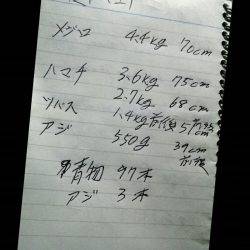 メジロ 4.4kg 70cm
ハマチ 3.6kg 75cm
2.7kg 68cm
ツバス 1.4kg前後 5
アジ 550g 39cm
前後
青物 97本
アジ 3本